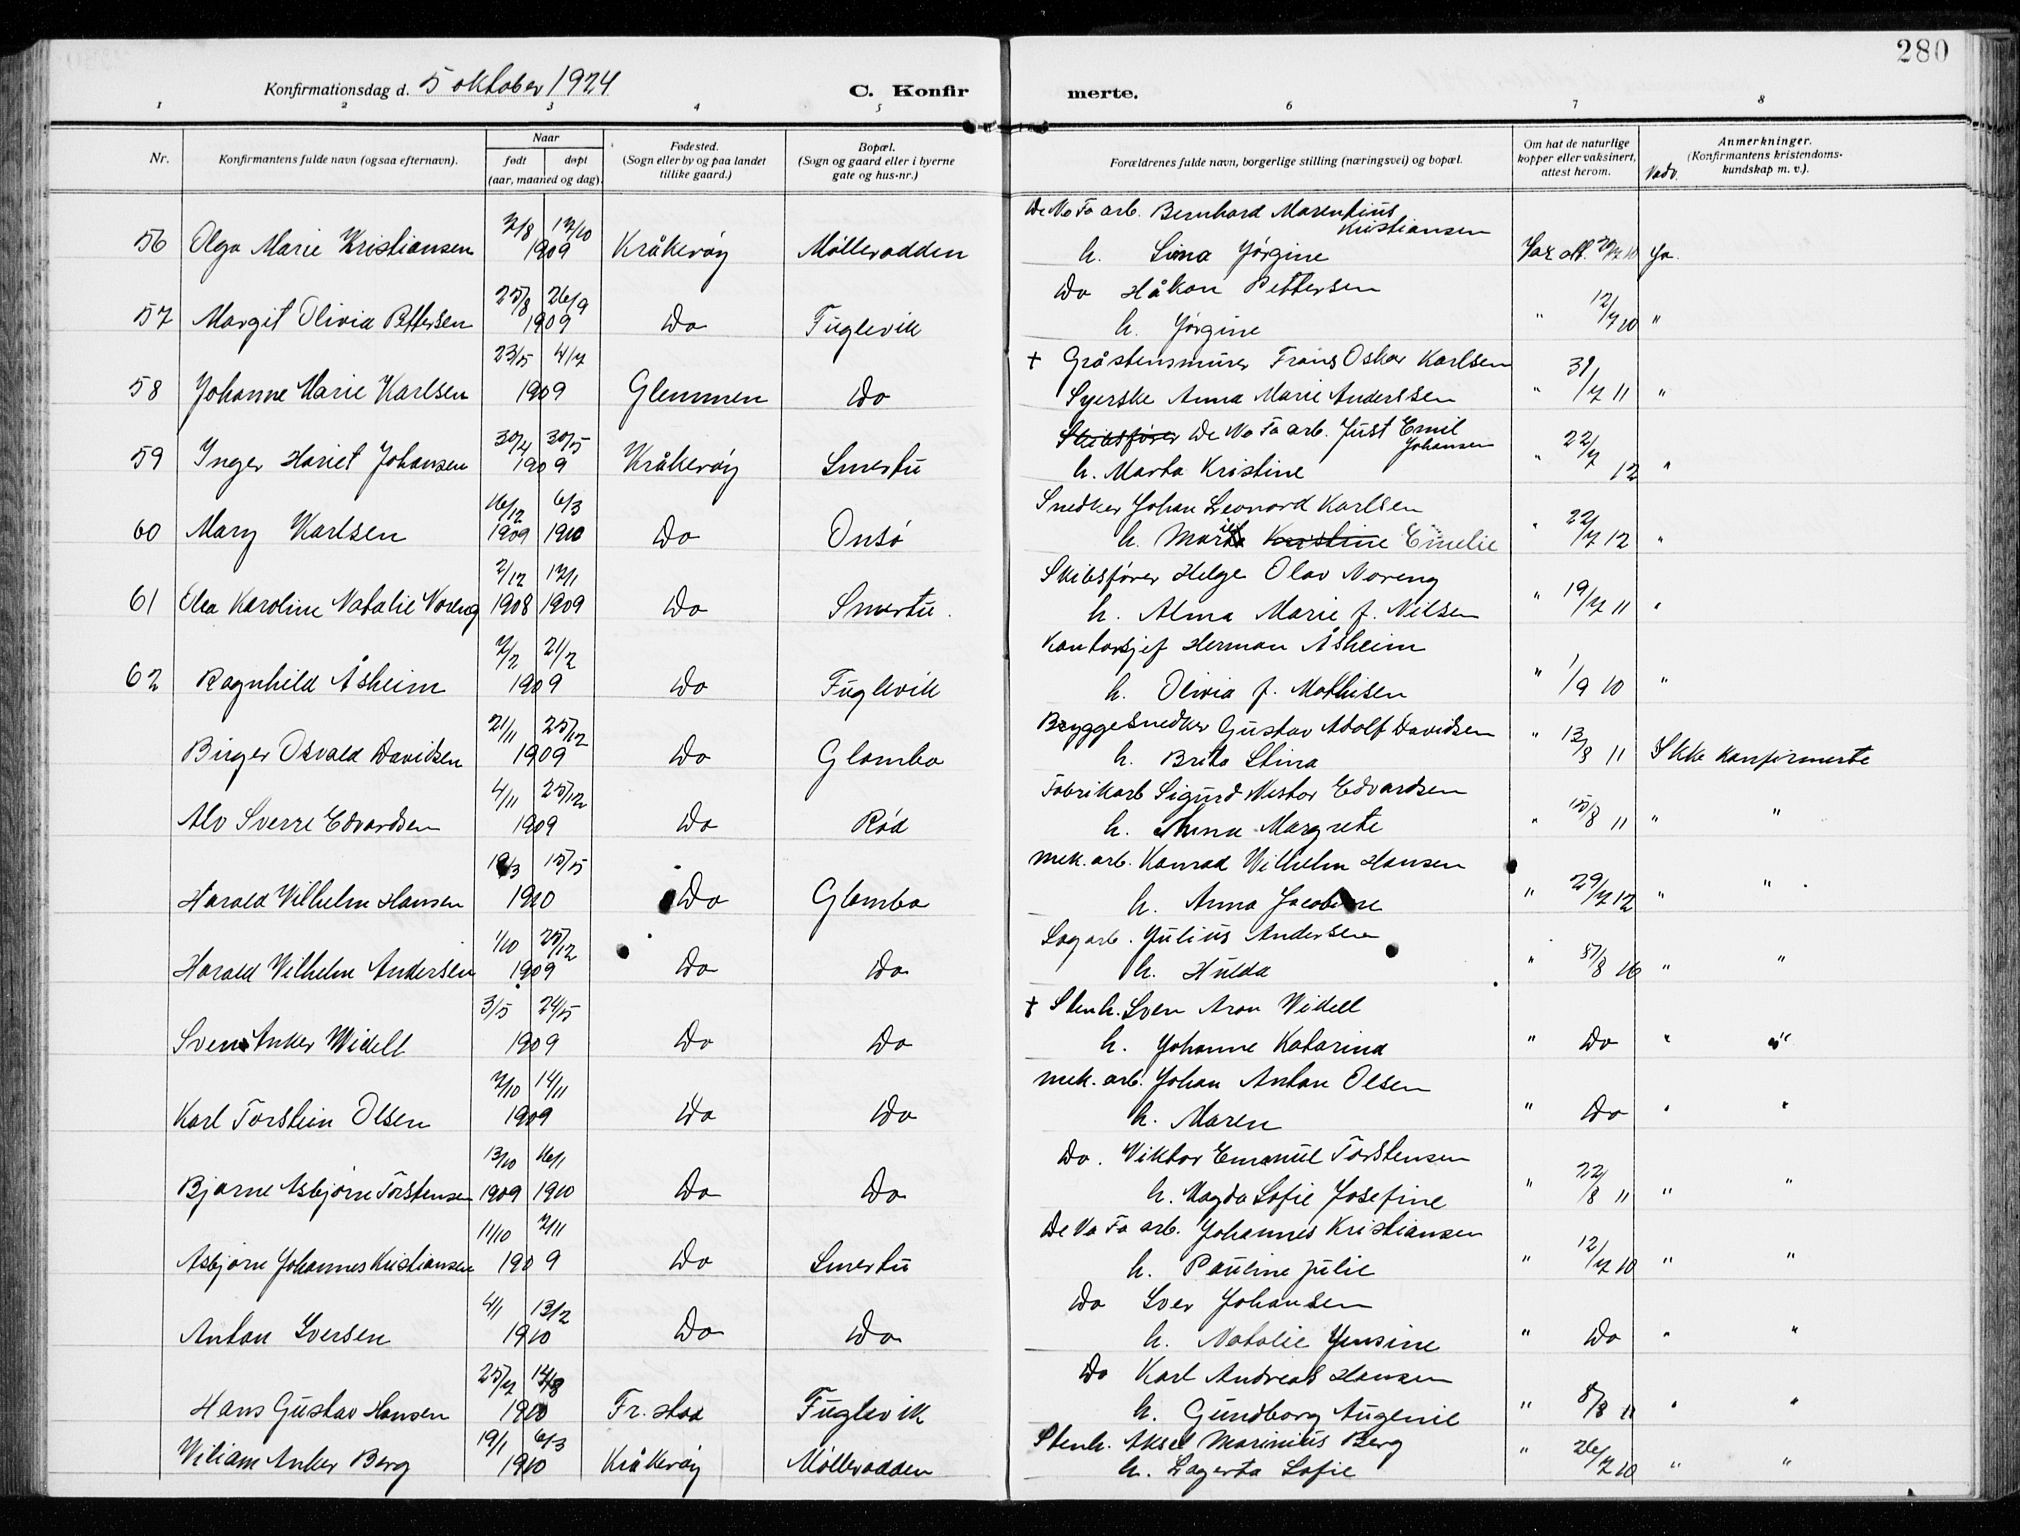 280
Konfirmationsdag d. 5 oktober 1924 C. Konfirmerte.
1 2 3 4 5 6 7 8
Nr. Konfirmantens fulde navn (ogsaa efternavn). Naar født døpt (aar, maaned og dag). Fødested. (Sogn eller by og paa landet tillike gaard.) Bopæl. (Sogn og gaard eller i byerne gate og hus-nr.) Forældrenes fulde navn, borgerlige stilling (næringsvei) og bopæl. Om hat de naturlige kopper eller vaksinert, attest herom. Anmerkninger. (Konfirmantens kristendomskundskap m. v.).
7/8 17/10 De No Fa arb. Bernhard Marentius Kristiansen
56 Olga Marie Kristiansen 1909 Kråkerøy Møllerodden h. Lina Jørgine Ja.
25/8 26/9 Do Håkon Pettersen
57 Margit Olivia Pettersen 1909 Do Fuglevik h. Jørgine " 12/7 10 "
23/5 4/7 + Gråstensmurer Frans Oskar Karlsen
58 Johanne Marie Karlsen 1909 Glemmen Do Syerske Anna Marie Anderssen " 31/7 11 "
30/4 30/5 Skibsfører De No Fa arb. Just Emil Johansen
59 Inger Hariet Johansen 1909 Kråkerøy Smertu h. Marta Kristine " 22/7 12 "
16/12 6/3 Snedker Johan Leonard Karlsen
60 Mary Karlsen 1909 1910 Do Onsø h. Marie Kristine Emelie " 22/7 12 "
2/12 17/1 Skibsfører Helge Olav Noreng
61 Elsa Karoline Natalie Noreng 1908 1909 Do Smertu. h. Alma Marie f. Nilsen " 19/7 11 "
7/2 21/2 Kontorsjef Herman Åsheim
62 Ragnhild Åsheim 1909 Do Fuglevik h. Olivia f. Mathisen " 1/9 10 "
21/11 25/12 Bryggesnedker Gustav Adolf Davidsen
Birger Osvald Davidsen 1909 Do Glombo h. Brita Stina " 13/8 11 Ikke konfirmerte
4/11 25/12 Fabrikarb Sigurd Nestor Edvardsen
Alv Sverre Edvardsen 1909 Do Rød h. Anna Margrete " 15/8 11 " "
15/5 mek. arb. Konrad Wilhelm Hansen
Harald Vilhelm Hansen 1910 Do Glombo h. Anna Jacobine " 29/7 12 " "
1/10 25/12 Sagarb. Julius Andersen
Harald Vilhelm Andersen 1909 Do Do h. Hulda " 31/8 16 " "
3/5 24/5 + Stenh. Sven Aron Widell
Sven Anker Widell 1909 Do Do h. Johanne Katarina " Do " "
7/10 14/11 mek. arb. Johan Anton Olsen
Karl Torstein Olsen 1909 Do Do h. Maren " Do " "
13/10 16/1 Do. Viktor Emanuel Torstensen
Bjarne Asbjørn Torstensen 1909 1910 Do Do h. Magda Sofie Josefine " 22/8 11 " "
11/10 7/11 De No Fa arb. Johannes Kristiansen
Asbjørn Johannes Kristiansen 1909 Do Smertu h. Pauline Julie " 12/7 10 " "
4/1 13/2 Do Iver Johansen
Anton Iversen 1910 Do Do h. Natalie Jensine " Do " "
25/7 14/8 Do Karl Andreas Hansen
Hans Gustav Hansen 1910 Fr. stad Fuglevik h. Gundborg Augenie " 8/8 11 " "
19/1 6/3 Stenh. Aksel Marinius Berg
Viliam Anker Berg 1910 Kråkerøy Møllerodden h. Lagerta Sofie " 26/7 10 " "